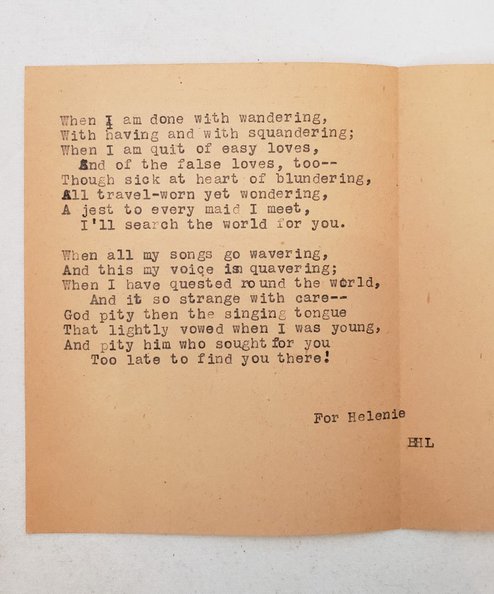 When I am done with wandering,
With having and with squandering;
When I am quit of easy loves,
And of the false loves, too--
Though sick at heart of blundering,
All travel-worn yet wondering,
A jest to every maid I meet,
I'll search the world for you.
When all my songs go wavering,
And this my voice is quavering;
When I have quested round the world,
And it so strange with care--
God pity then the singing tongue
That lightly vowed when I was young,
And pity him who sought for you
Too late to find you there!
For Helenie
HL